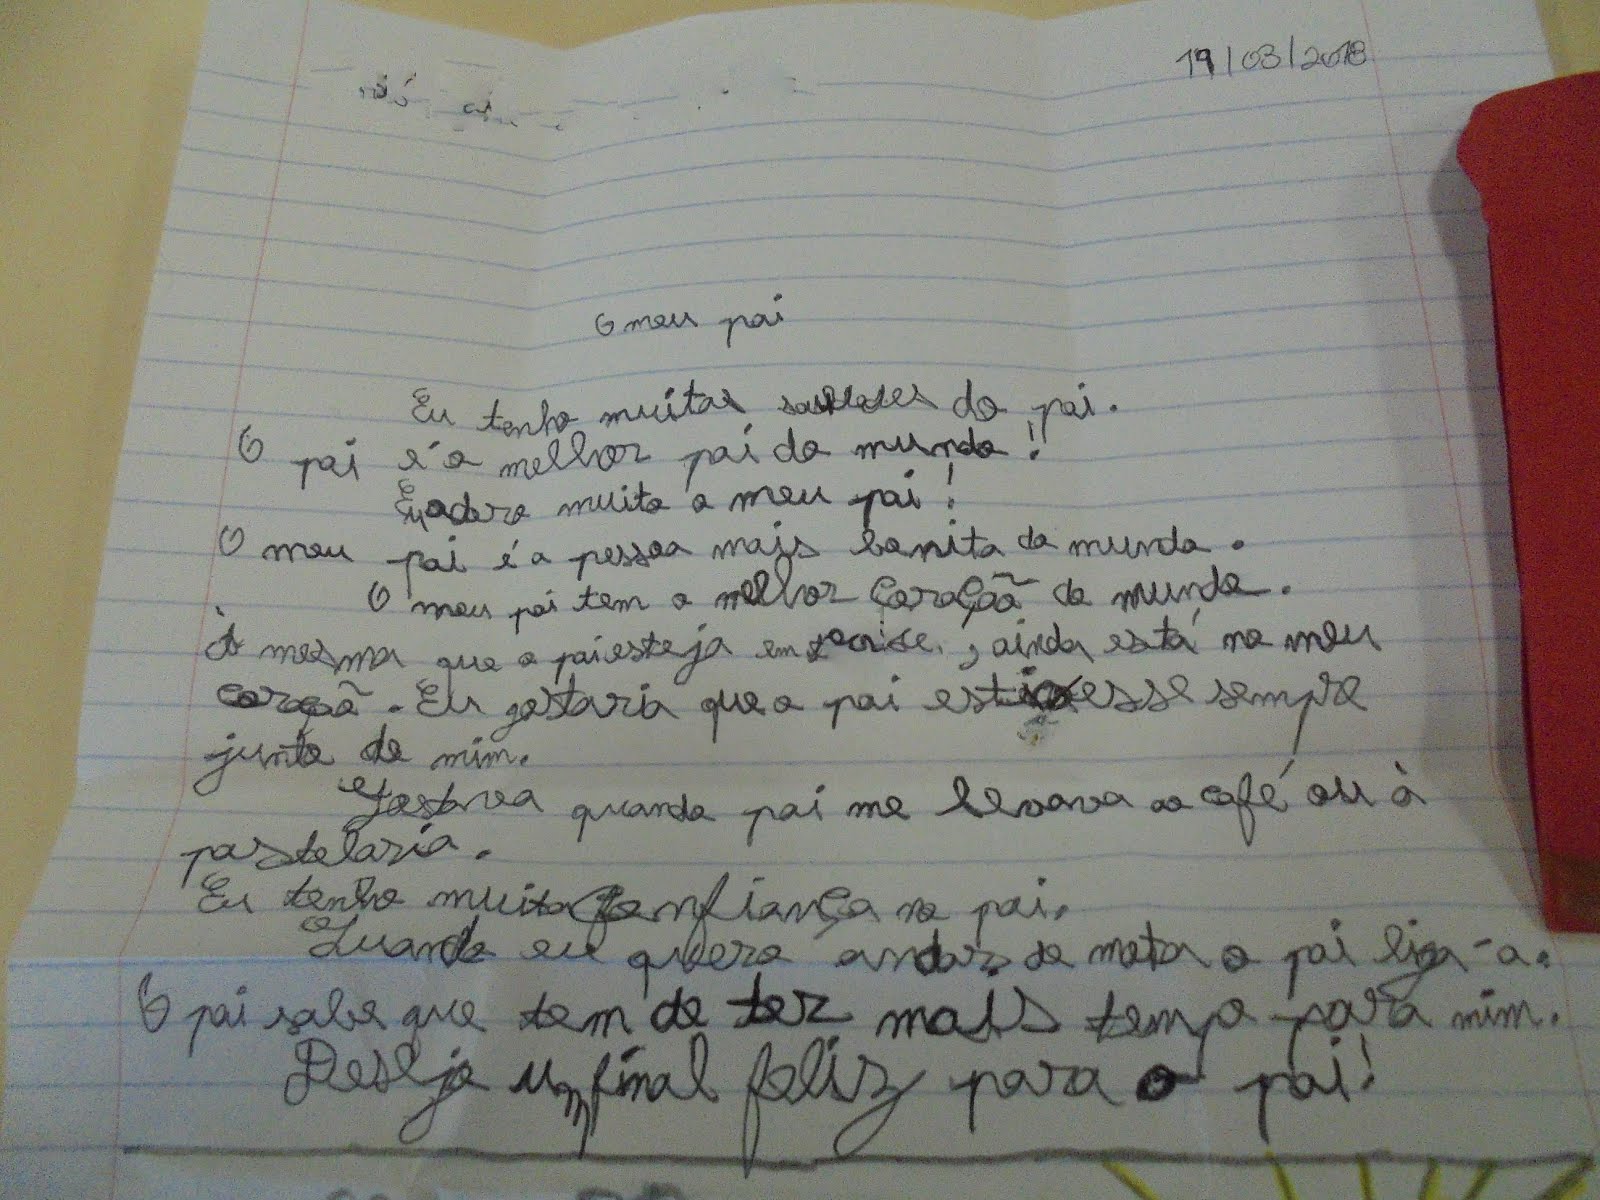 19/03/2018
O meu pai
Eu tenho muitas saudades do pai.
O pai é o melhor pai do mundo!
Eu adoro muito o meu pai!
O meu pai é a pessoa mais bonita do mundo.
O meu pai tem o melhor coração do mundo.
O mesmo que o pai esteja em França, ainda está no meu
coração. Eu gostaria que o pai estivesse sempre
junto de mim.
Gostava quando pai me levava ao café ou à
pastelaria.
Eu tenho muita confiança no pai.
Quando eu quero andar de mota o pai liga-a.
O pai sabe que tem de ter mais tempo para mim.
Desejo um final feliz para o pai!